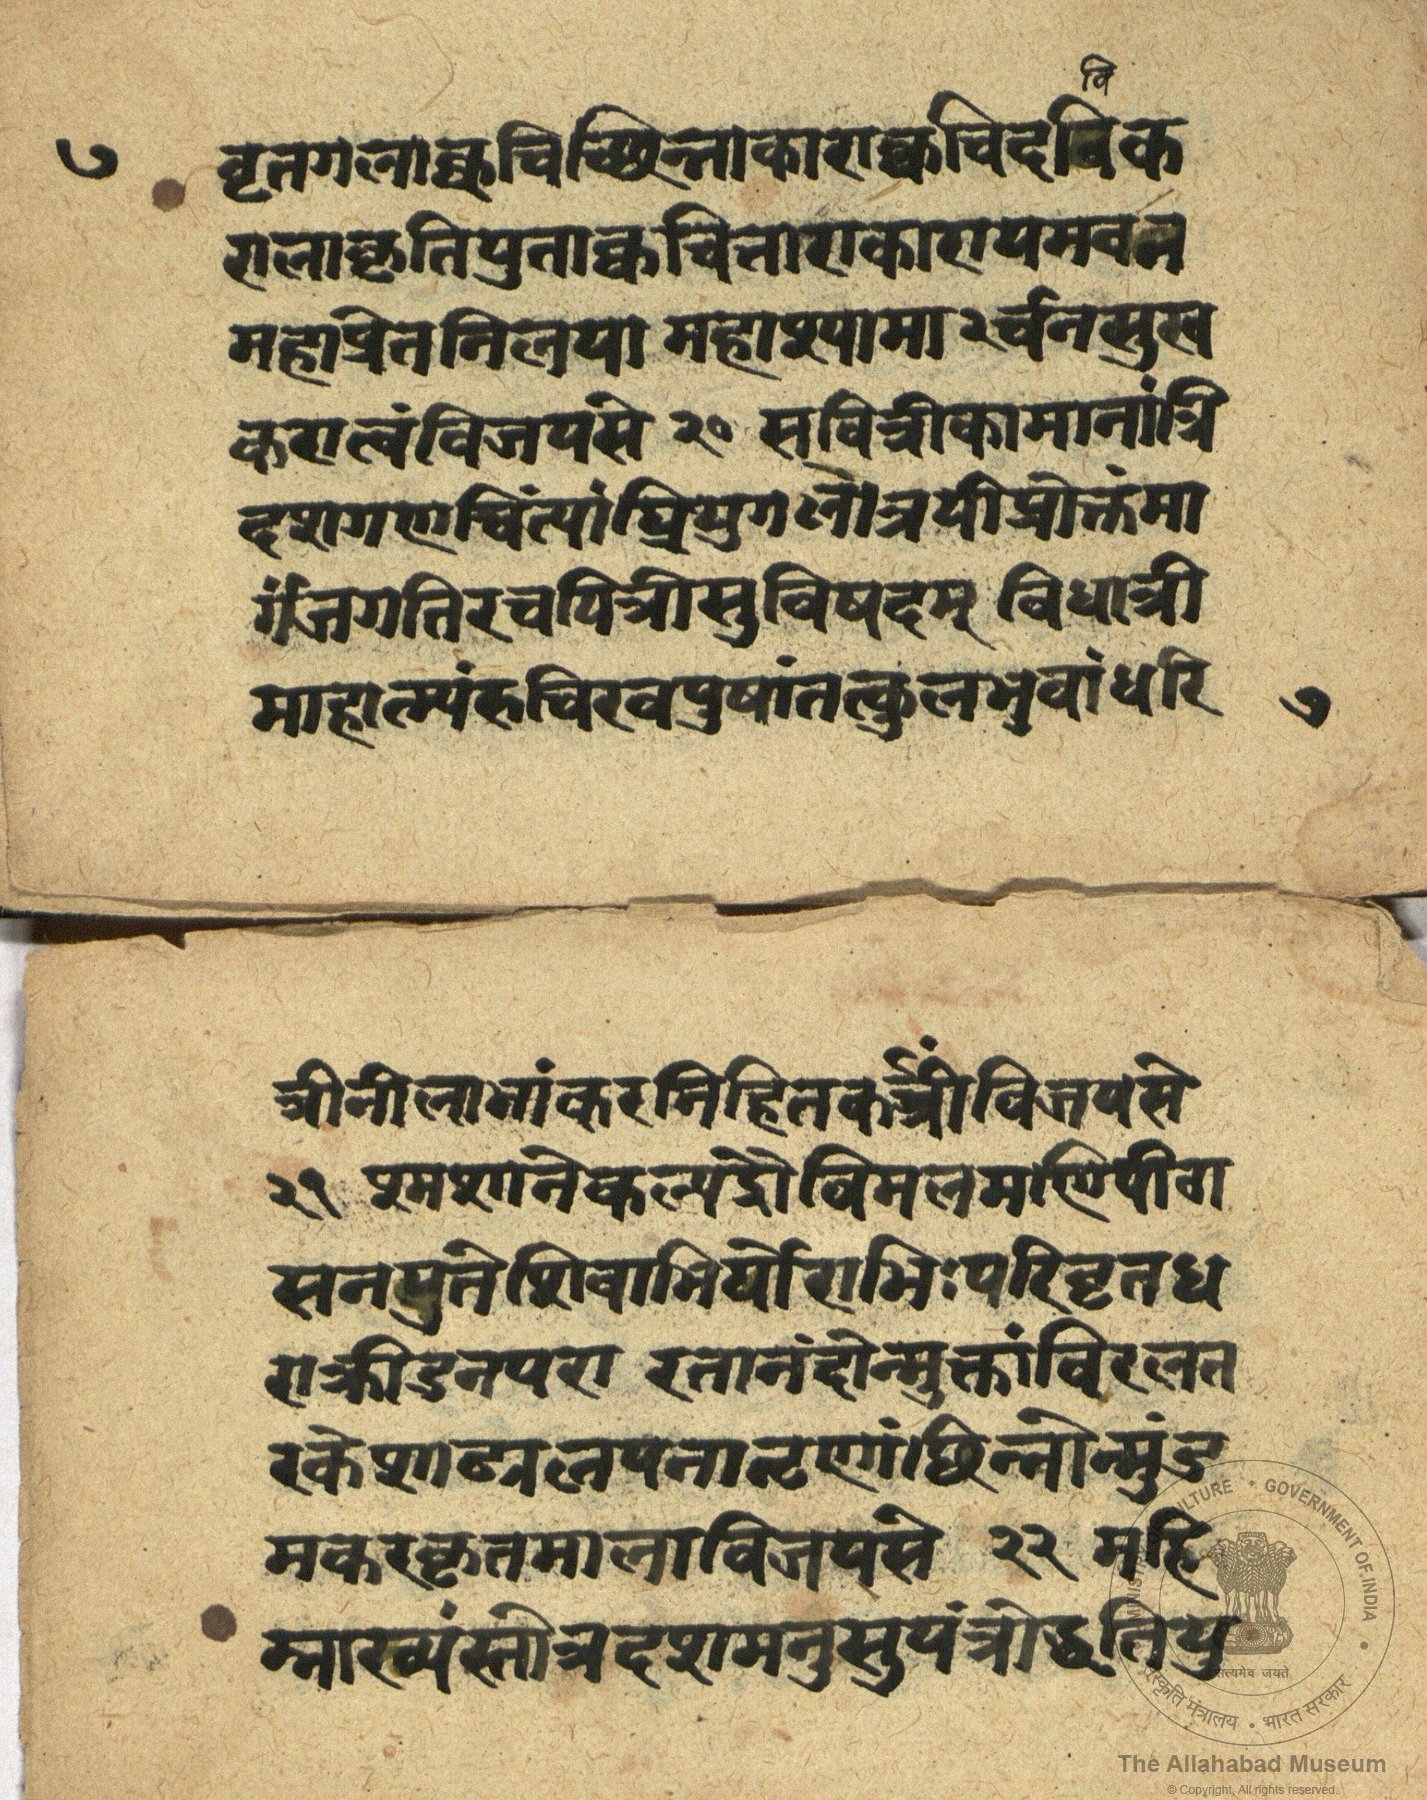 वि
७
वृतगलाक्वचिच्छिन्नाकाराक्वचिदविक
रालाकृतिपुताक्वचित्ताराकारायमवल
महाप्रेतनिलया महाश्यामा २र्चनसुख
करात्वंविजयसे २० सवित्रीकामानांत्रि
दशगणचिंत्यांघ्रियुगलोत्रयीप्रोक्तंमा
र्गंजगतिरचयित्रीसुविषदम् विधात्री
माहात्म्यंरुचिरवपुषांतत्कुलभुवांधरि
७
त्रीनीलाभांकरनिहितकर्त्रींविजयसे
२१ श्मशानेकल्पदौविमलमाणिपीठा
सनयुतेशिवाभिर्घोराभिःपरिवृतध
राक्रीडनपरा रतानंदोन्मुक्तांविरलत
रकेशाव्य्रलपना छिन्नोन्मुंड
मकरकृतमालाविजयसे २२ महि
म्नाख्यंस्तोत्रदशमनुसुयंत्रोद्धृतियु
MINISTRY OF CULTURE • GOVERNMENT OF INDIA
सत्यमेव जयते
संस्कृति मंत्रालय • भारत सरकार
The Allahabad Museum
© Copyright, All rights reserved.